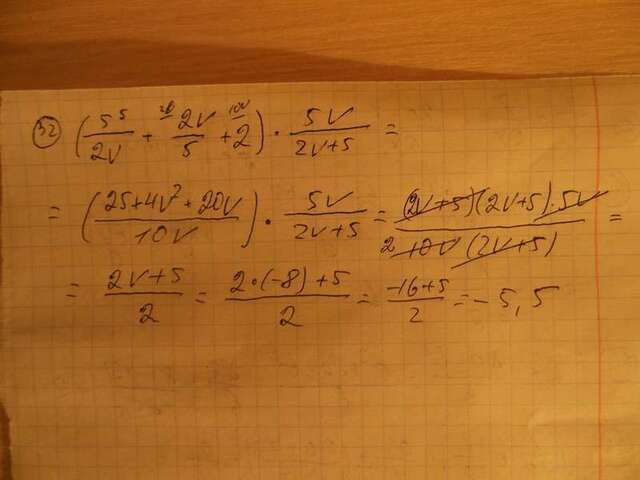 32) (5⁵/2v + ²ᵛ 2v/5 + ¹⁰ᵛ 2) · 5v/2v+5 =
= (25+4v²+20v/10v) · 5v/2v+5 = (2v+5)(2v+5)·5v/2 10v (2v+5) =
= 2v+5/2 = 2·(-8)+5/2 = -16+5/2 = -5,5